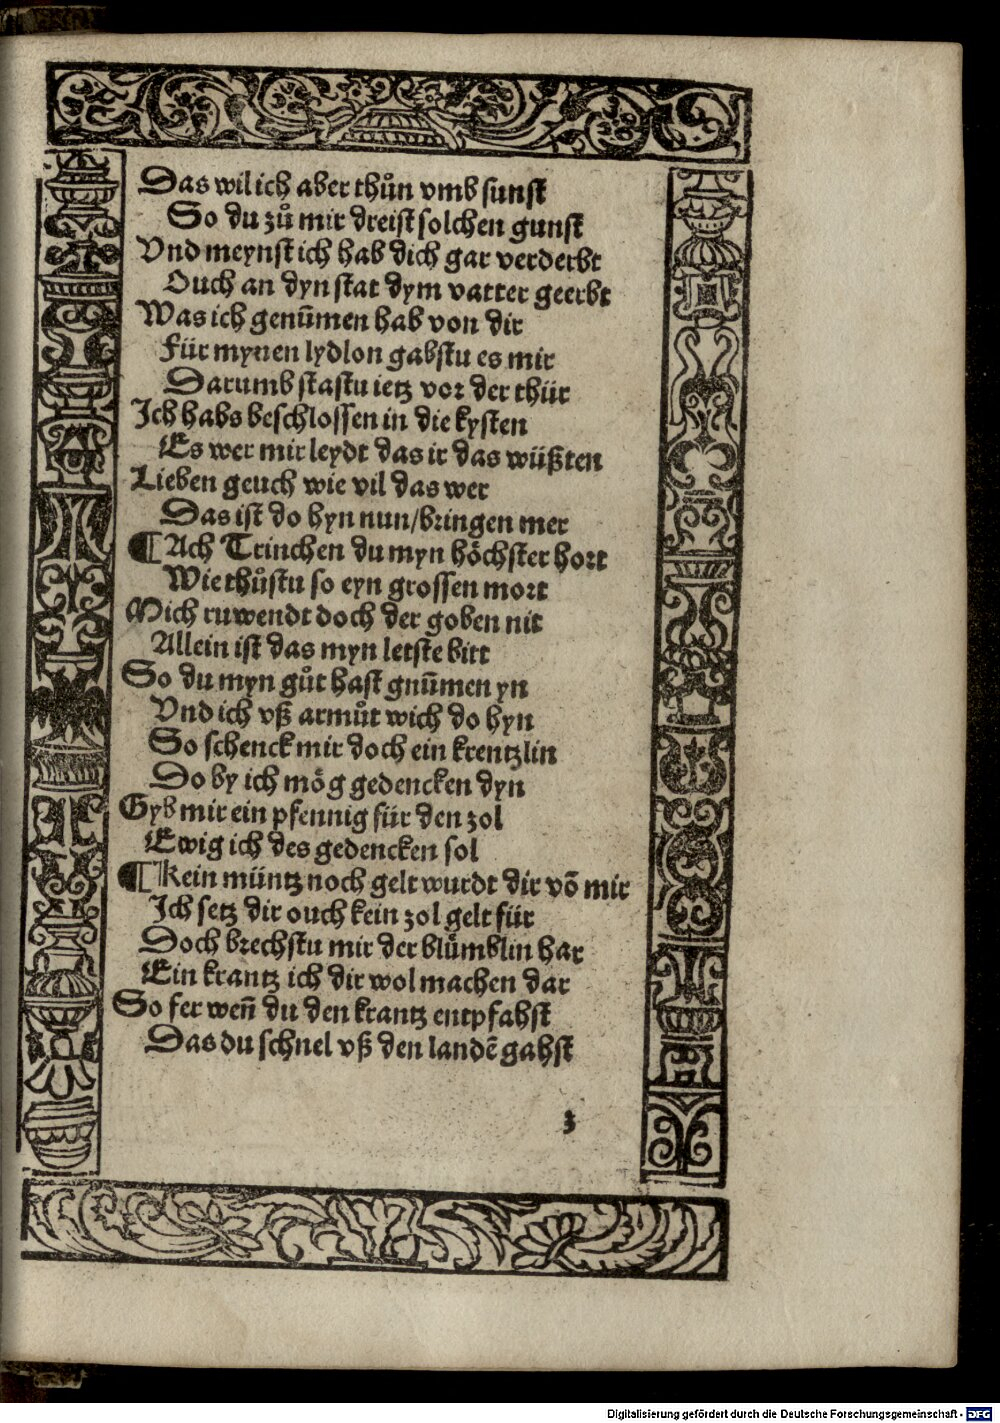 Das wil ich aber thůn vmb sunst
So du zů mir dreist solchen gunst
Vnd meynst ich hab dich gar verderbt
Ouch an dyn stat dym vatter geerbt
Was ich genūmen hab von dir
Für mynen lydlon gabstu es mir
Darumb stastu ietz vor der thür
Ich habs beschlossen in die kysten
Es wer mir leydt das ir das wüßten
Lieben geuch wie vil das wer
Das ist do hyn nun/bringen mer
¶ Ach Trinchen du myn höchster hort
Wie thůstu so eyn grossen mort
Mich ruwendt doch der goben nit
Allein ist das myn letste bitt
So du myn gůt hast gnūmen yn
Vnd ich vß armůt wich do hyn
So schenck mir doch ein krentzlin
Do by ich mög gedencken dyn
Gyb mir ein pfennig für den zol
Ewig ich des gedencken sol
¶ Kein müntz noch gelt wurdt dir vō mir
Ich setz dir ouch kein zol gelt für
Doch brechstu mir der blümblin har
Ein krantz ich dir wol machen dar
So fer weñ du den krantz entpfahst
Das du schnel vß den landē gahst
z
Digitalisierung gefördert durch die Deutsche Forschungsgemeinschaft - DFG